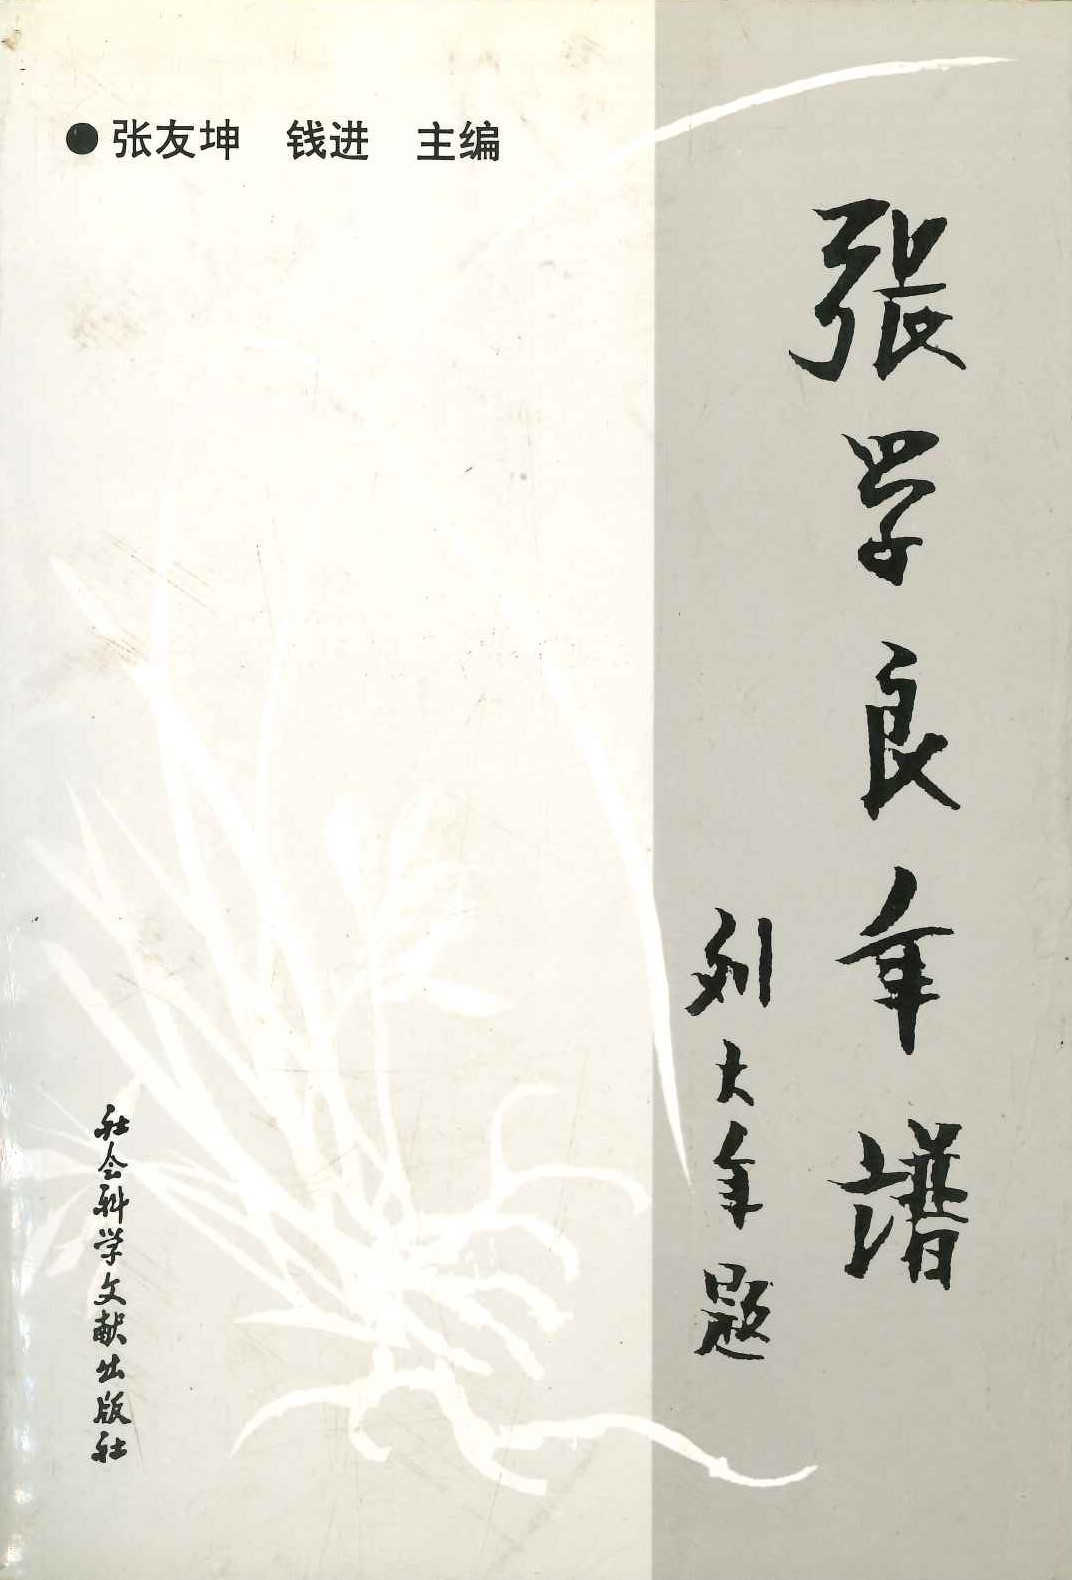 ●张友坤 钱进 主编
張学良年譜
刘大年题
社会科学文献出版社